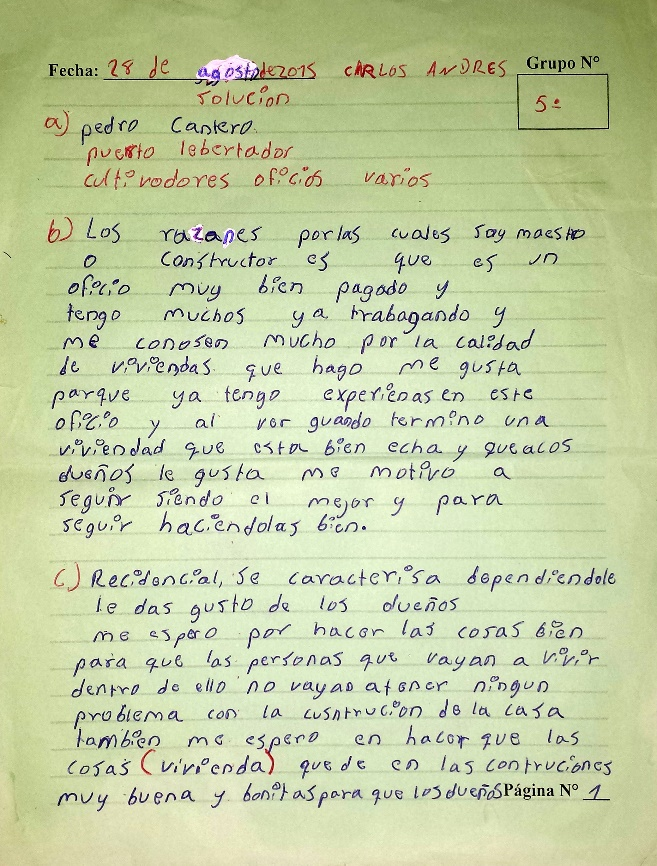 Fecha: 28 de agosto de 2015 CARLOS ANDRES Grupo N°
solucion
5º
a) pedro Cantero.
puerto lebertador
cultivodores oficios varios
b) Los razanes porlas cuales soy maestro
o constructor es que es un
oficio muy bien pagado y
tengo muchos ya trabagando y
me conosen mucho por la calidad
de viviendas que hago me gusta
parque ya tengo experienas en este
oficio y al ver guando termino una
viviendad que esta bien echa y queacos
dueños le gusta me motivo a
seguir siendo el mejor y para
seguir haciendolas bien.
c) Recidencial, se caracterisa dependiendole
le das gusto de los dueños
me espero por hacer las cosas bien
para que las personas que vayan a vivir
dentro de ello no vayan atener ningun
problema con la cusntrucion de la casa
tambien me espero en hacer que las
cosas (vivienda) quede en las contruciones
muy buena y bonitas para que los dueños Página N° 1